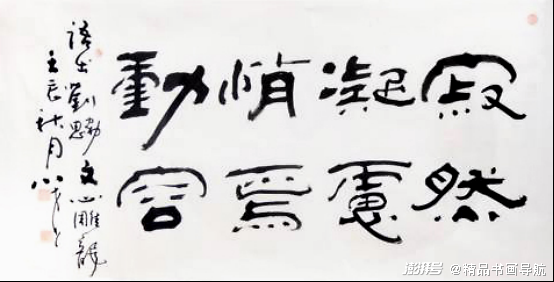 寂然
凝慮
悄焉
動容
語出劉勰文心雕龍
壬辰秋月
澎湃号 @精品书画导航